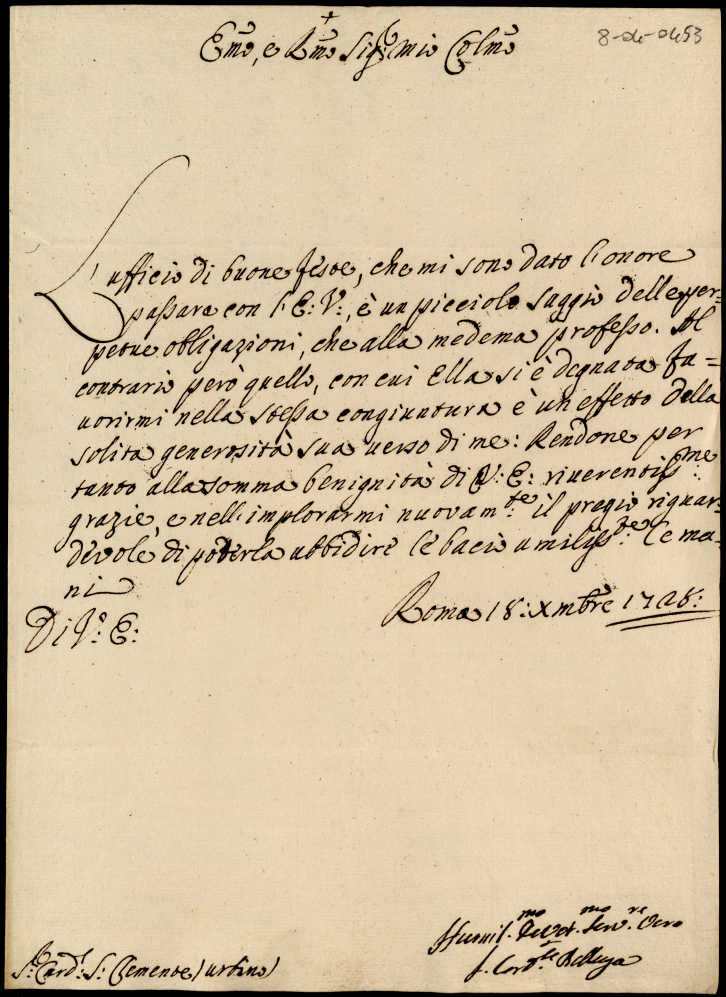 8-a-0453
Em̃o, e Rm̃o Sig.r mio Colm̃o
L'ufficio di buone feste, che mi sono dato l'onore
passare con l'E: V:, è un picciolo saggio delle per-
petue obligazioni, che alla medema professo. Al
contrario però quello, con cui Ella si è degnata fa=
uorirmi nella stessa congiuntura è un effetto della
solita generosità sua verso di me: Rendone per
tanto alla somma benignità di V: E: riverentiss.me
grazie, e nell'implorarmi nuovam.te il pregio riguar-
devole di poterla ubbidire le bacio umiliss.te le ma-
ni
Roma 18: Xmbre 1728:
Di V.a E:
Humil.mo Devot.mo Serv.re Vero
S.r Card.l S: Clemente (Urbino)
L. Card.le Belluga